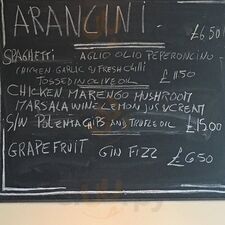 ARANCINI - £6.50
SPAGHETTI AGLIO OLIO PEPERONCINO
CHICKEN GARLIC & FRESH CHILLI
TOSSED IN OLIVE OIL £11.50
CHICKEN MARENGO MUSHROOM
MARSALA WINE LEMON JUS & CREAM
S/W POLENTA CHIPS AND TRUFLE OIL £15.00
GRAPEFRUIT GIN FIZZ £6.50